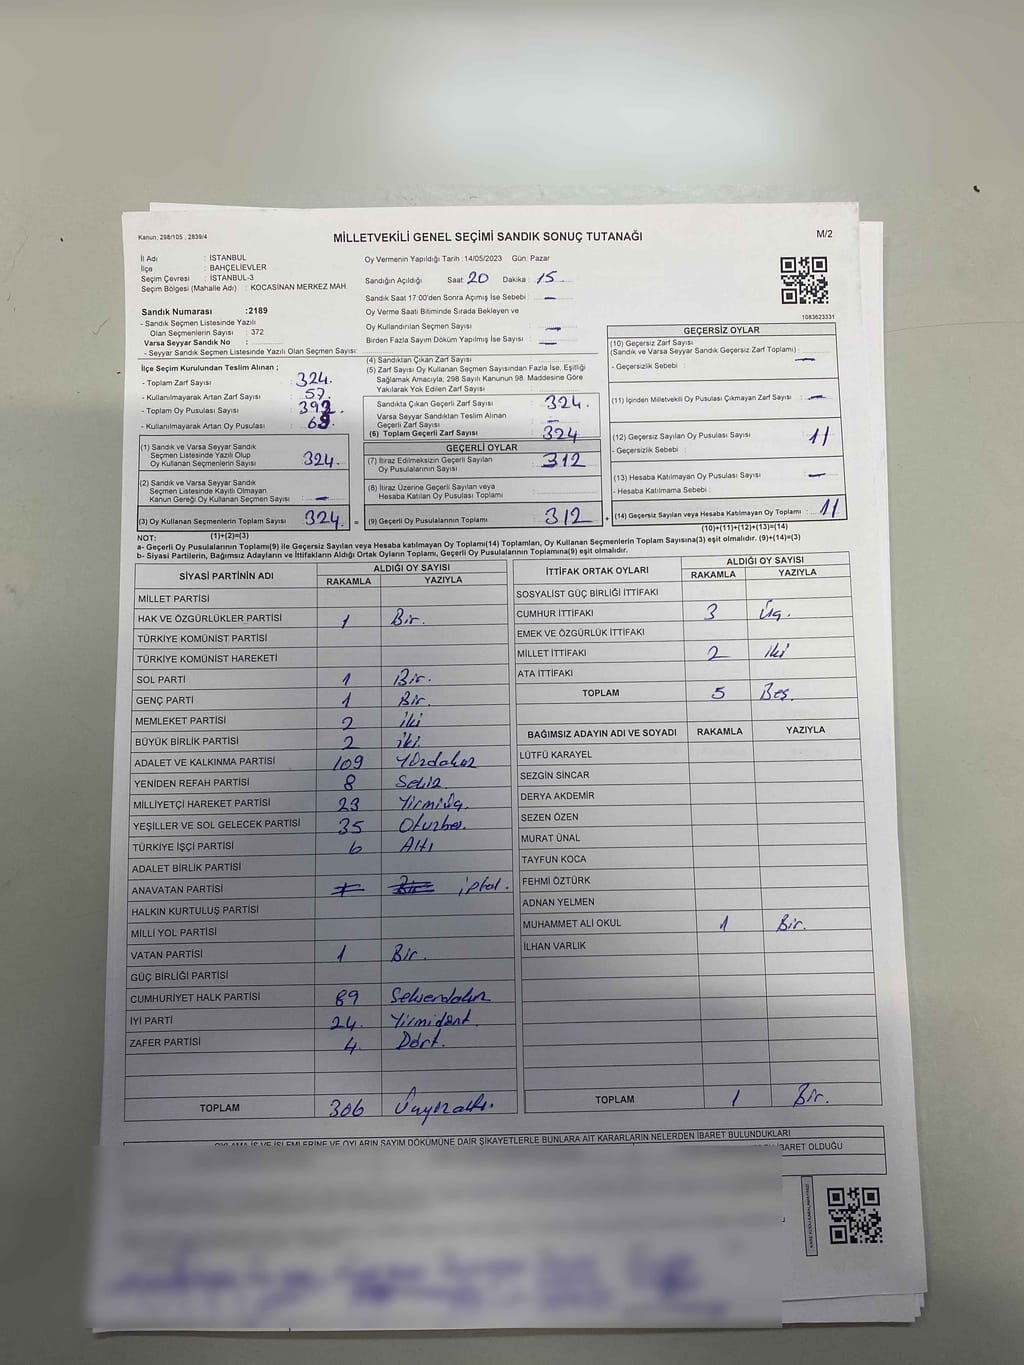 Kanun, 298/105 , 2839/4
MİLLETVEKİLİ GENEL SEÇİMİ SANDIK SONUÇ TUTANAĞI
M/2
İl Adı : İSTANBUL
İlçe : BAHÇELİEVLER
Seçim Çevresi : İSTANBUL-3
Seçim Bölgesi (Mahalle Adı) : KOCASİNAN MERKEZ MAH.
Sandık Numarası :2189
- Sandık Seçmen Listesinde Yazılı
Olan Seçmenlerin Sayısı : 372
Varsa Seyyar Sandık No :
- Seyyar Sandık Seçmen Listesinde Yazılı Olan Seçmen Sayısı:
Oy Vermenin Yapıldığı Tarih :14/05/2023 Gün: Pazar
Sandığın Açıldığı Saat: 20 Dakika : 15
Sandık Saat 17:00'den Sonra Açımış İse Sebebi : —
Oy Verme Saati Bitiminde Sırada Bekleyen ve
Oy Kullandırılan Seçmen Sayısı : —
Birden Fazla Sayım Döküm Yapılmış İse Sayısı : —
1083623331
İlçe Seçim Kurulundan Teslim Alınan ;
- Toplam Zarf Sayısı : 324.
- Kullanılmayarak Artan Zarf Sayısı : 57.
- Toplam Oy Pusulası Sayısı : 392.
- Kullanılmayarak Artan Oy Pusulası : 68.
(1) Sandık ve Varsa Seyyar Sandık
Seçmen Listesinde Yazılı Olup
Oy Kullanan Seçmenlerin Sayısı : 324.
(2) Sandık ve Varsa Seyyar Sandık
Seçmen Listesinde Kayıtlı Olmayan
Kanun Gereği Oy Kullanan Seçmen Sayısı : —
(3) Oy Kullanan Seçmenlerin Toplam Sayısı 324.
(1)+(2)=(3)
(4) Sandıktan Çıkan Zarf Sayısı :
(5) Zarf Sayısı Oy Kullanan Seçmen Sayısından Fazla İse, Eşitliği
Sağlamak Amacıyla, 298 Sayılı Kanunun 98. Maddesine Göre
Yakılarak Yok Edilen Zarf Sayısı :
Sandıkta Çıkan Geçerli Zarf Sayısı : 324.
Varsa Seyyar Sandıktan Teslim Alınan
Geçerli Zarf Sayısı : —
(6) Toplam Geçerli Zarf Sayısı : 324
GEÇERLİ OYLAR
(7) İtiraz Edilmeksizin Geçerli Sayılan
Oy Pusulalarının Sayısı : 312
(8) İtiraz Üzerine Geçerli Sayılan veya
Hesaba Katılan Oy Pusulası Toplamı :
= (9) Geçerli Oy Pusulalarının Toplamı : 312 +
GEÇERSİZ OYLAR
(10) Geçersiz Zarf Sayısı
(Sandık ve Varsa Seyyar Sandık Geçersiz Zarf Toplamı) : —
- Geçersizlik Sebebi :
(11) İçinden Milletvekili Oy Pusulası Çıkmayan Zarf Sayısı : —
(12) Geçersiz Sayılan Oy Pusulası Sayısı : 11
- Geçersizlik Sebebi :
(13) Hesaba Katılmayan Oy Pusulası Sayısı : —
- Hesaba Katılmama Sebebi :
(14) Geçersiz Sayılan veya Hesaba Katılmayan Oy Toplamı : 11
(10)+(11)+(12)+(13)=(14)
NOT:
a- Geçerli Oy Pusulalarının Toplamı(9) ile Geçersiz Sayılan veya Hesaba Katılmayan Oy Pusulası Toplamı(14) Toplamları, Oy Kullanan Seçmenlerin Toplam Sayısına(3) eşit olmalıdır. (9)+(14)=(3)
b- Siyasi Partilerin, Bağımsız Adayların ve İttifakların Aldığı Ortak Oyların Toplamı, Geçerli Oy Pusulalarının Toplamına(9) eşit olmalıdır.
SİYASİ PARTİNİN ADI ALDIĞI OY SAYISI
RAKAMLA YAZIYLA
MİLLET PARTİSİ
HAK VE ÖZGÜRLÜKLER PARTİSİ 1 Bir.
TÜRKİYE KOMÜNİST PARTİSİ
TÜRKİYE KOMÜNİST HAREKETİ
SOL PARTİ 1 Bir.
GENÇ PARTİ 1 Bir.
MEMLEKET PARTİSİ 2 iki
BÜYÜK BİRLİK PARTİSİ 2 iki.
ADALET VE KALKINMA PARTİSİ 109 Yüzdokuz
YENİDEN REFAH PARTİSİ 8 Sekiz
MİLLİYETÇİ HAREKET PARTİSİ 23 Yirmiüç.
YEŞİLLER VE SOL GELECEK PARTİSİ 35 Otuzbeş.
TÜRKİYE İŞÇİ PARTİSİ 6 Altı
ADALET BİRLİK PARTİSİ
ANAVATAN PARTİSİ 1 Bir iptal.
HALKIN KURTULUŞ PARTİSİ
MİLLİ YOL PARTİSİ
VATAN PARTİSİ 1 Bir.
GÜÇ BİRLİĞİ PARTİSİ
CUMHURİYET HALK PARTİSİ 89 Seksendokuz
İYİ PARTİ 24. Yirmidört.
ZAFER PARTİSİ 4. Dört.
TOPLAM 306 Üçyüzaltı.
İTTİFAK ORTAK OYLARI ALDIĞI OY SAYISI
RAKAMLA YAZIYLA
SOSYALİST GÜÇ BİRLİĞİ İTTİFAKI
CUMHUR İTTİFAKI 3 Üç.
EMEK VE ÖZGÜRLÜK İTTİFAKI
MİLLET İTTİFAKI 2 iki
ATA İTTİFAKI
TOPLAM 5 Beş.
BAĞIMSIZ ADAYIN ADI VE SOYADI RAKAMLA YAZIYLA
LÜTFÜ KARAYEL
SEZGİN SİNCAR
DERYA AKDEMİR
SEZEN ÖZEN
MURAT ÜNAL
TAYFUN KOCA
FEHMİ ÖZTÜRK
ADNAN YELMEN
MUHAMMET ALİ OKUL 1 Bir.
İLHAN VARLIK
TOPLAM 1 Bir.
OYLAMA İŞ VE İŞLEMLERİNE VE OYLARIN SAYIM DÖKÜMÜNE DAİR ŞİKAYETLERLE BUNLARA AİT KARARLARIN NELERDEN İBARET BULUNDUKLARI
İBARET OLDUĞU